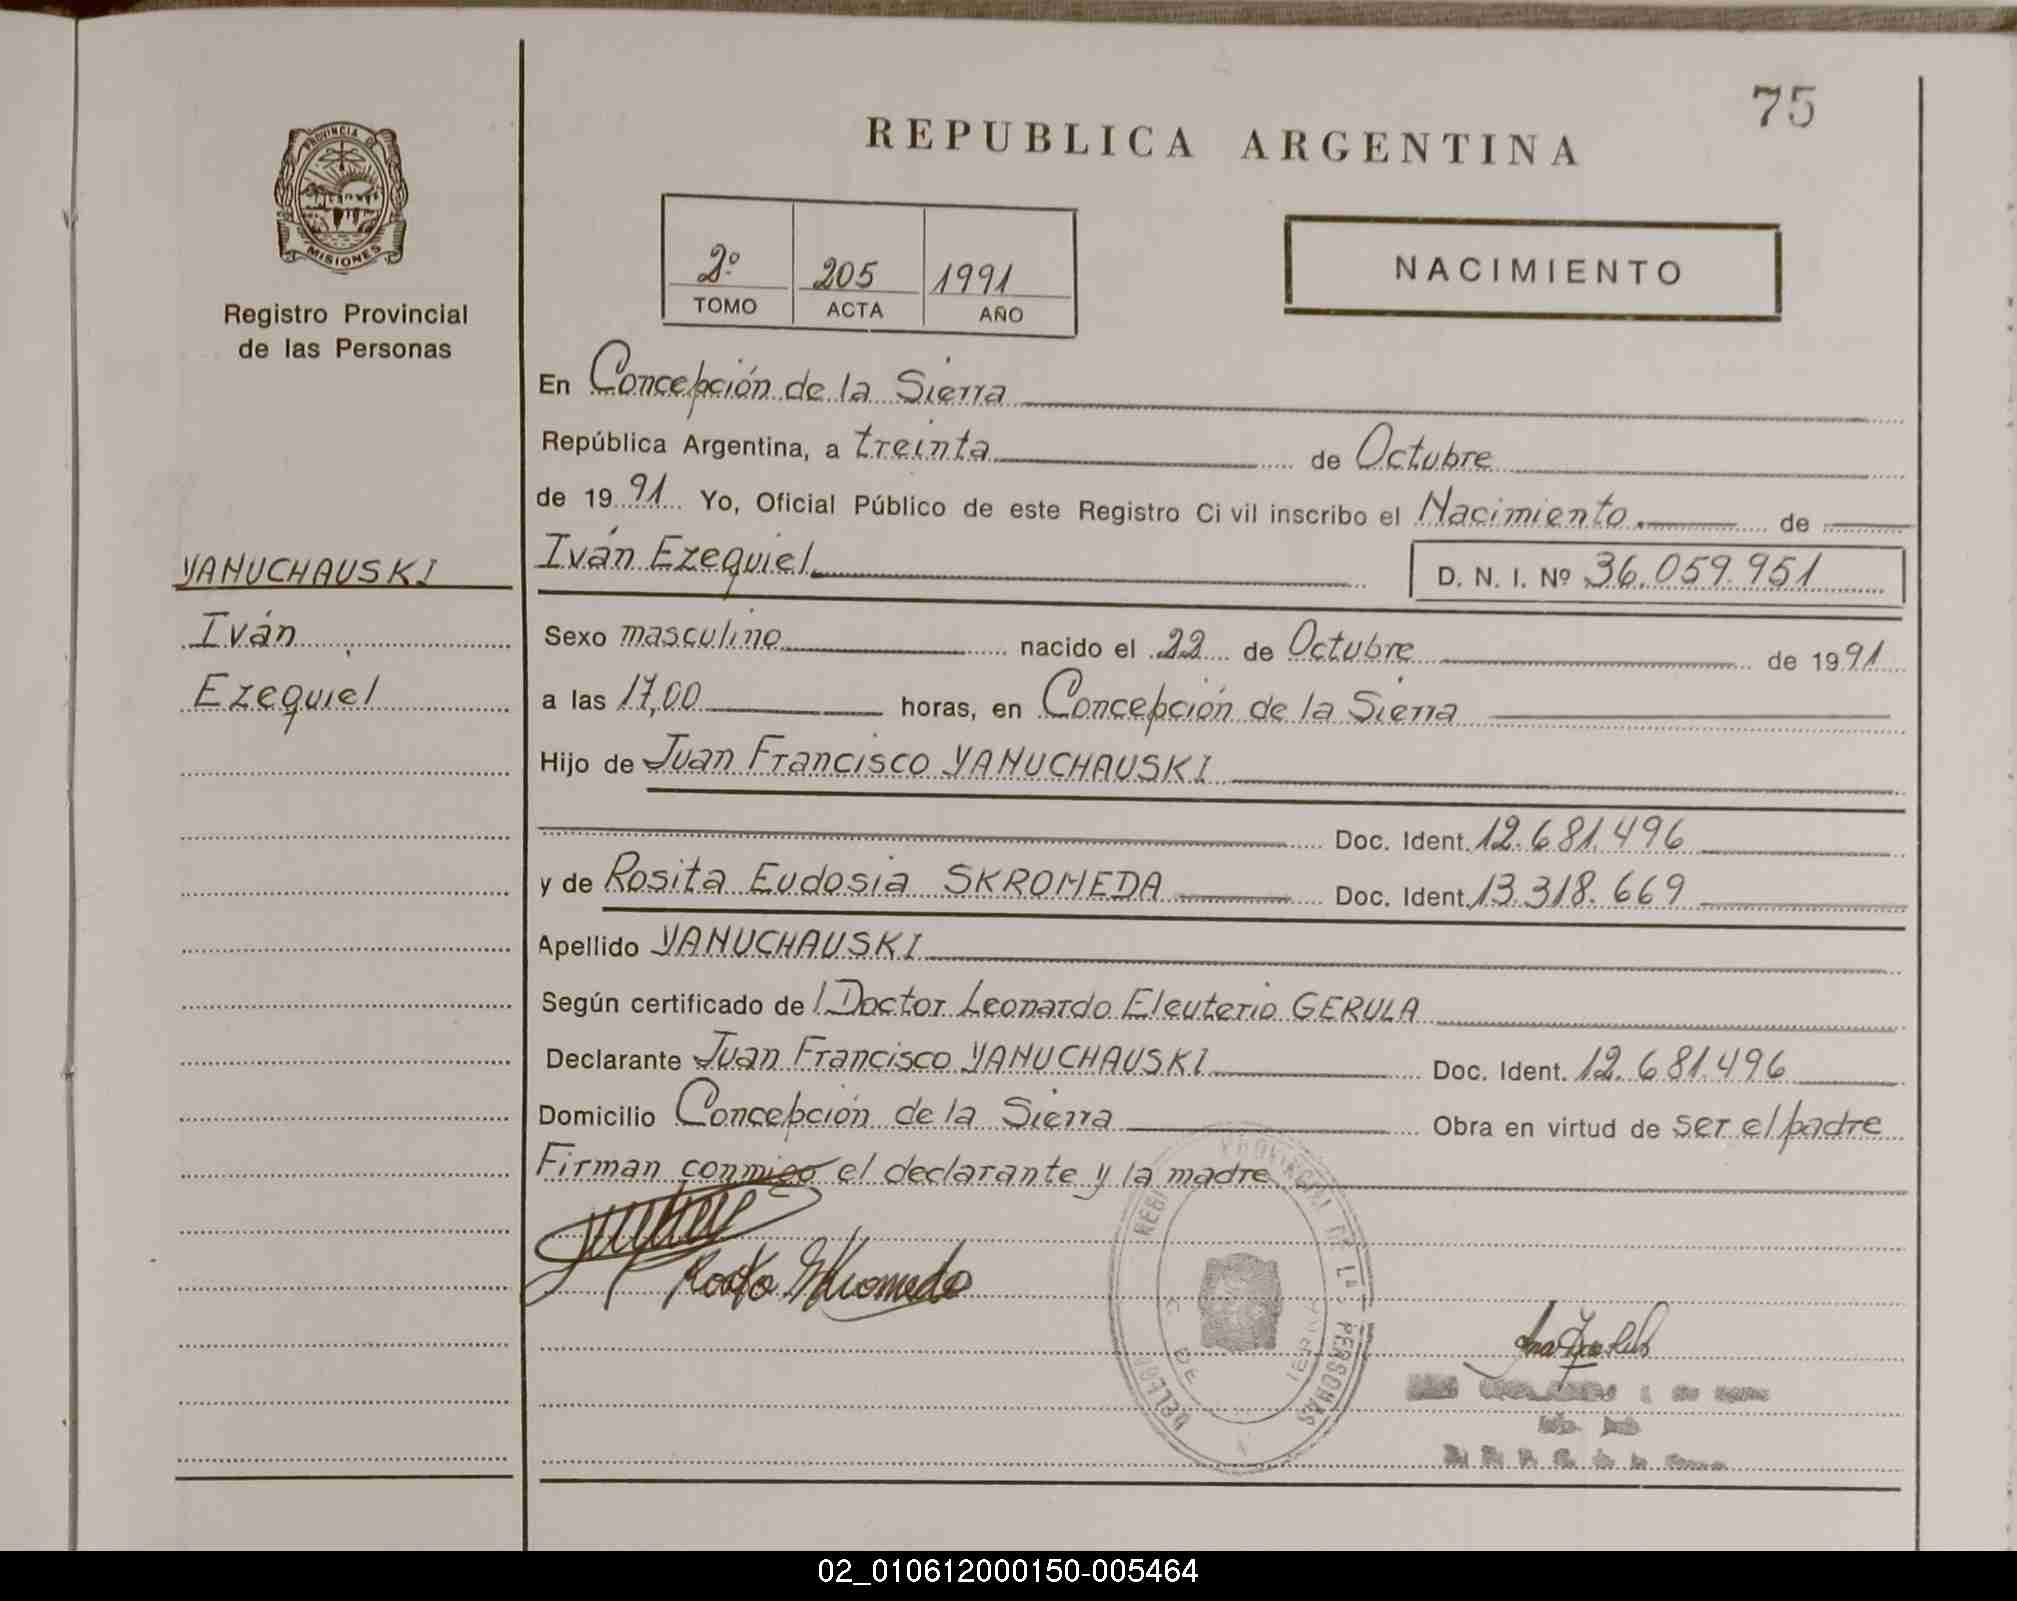 75
REPUBLICA ARGENTINA
PROVINCIA DE
MISIONES
Registro Provincial
de las Personas
2º 205 1991
TOMO ACTA AÑO
NACIMIENTO
En Concepción de la Sierra
República Argentina, a treinta de Octubre
de 1991 Yo, Oficial Público de este Registro Civil inscribo el Nacimiento de
YANUCHAUSKI
Iván
Ezequiel
Iván Ezequiel D. N. I. Nº 36.059.951
Sexo masculino nacido el 22 de Octubre de 1991
a las 17,00 horas, en Concepción de la Sierra
Hijo de Juan Francisco YANUCHAUSKI
Doc. Ident. 12.681.496
y de Rosita Eudosia SKROMEDA Doc. Ident. 13.318.669
Apellido YANUCHAUSKI
Según certificado del Doctor Leonardo Eleuterio GERULA
Declarante Juan Francisco YANUCHAUSKI Doc. Ident. 12.681.496
Domicilio Concepción de la Sierra Obra en virtud de ser el padre
Firman conmigo el declarante y la madre
PROVINCIAL DE LAS PERSONAS
02_010612000150-005464